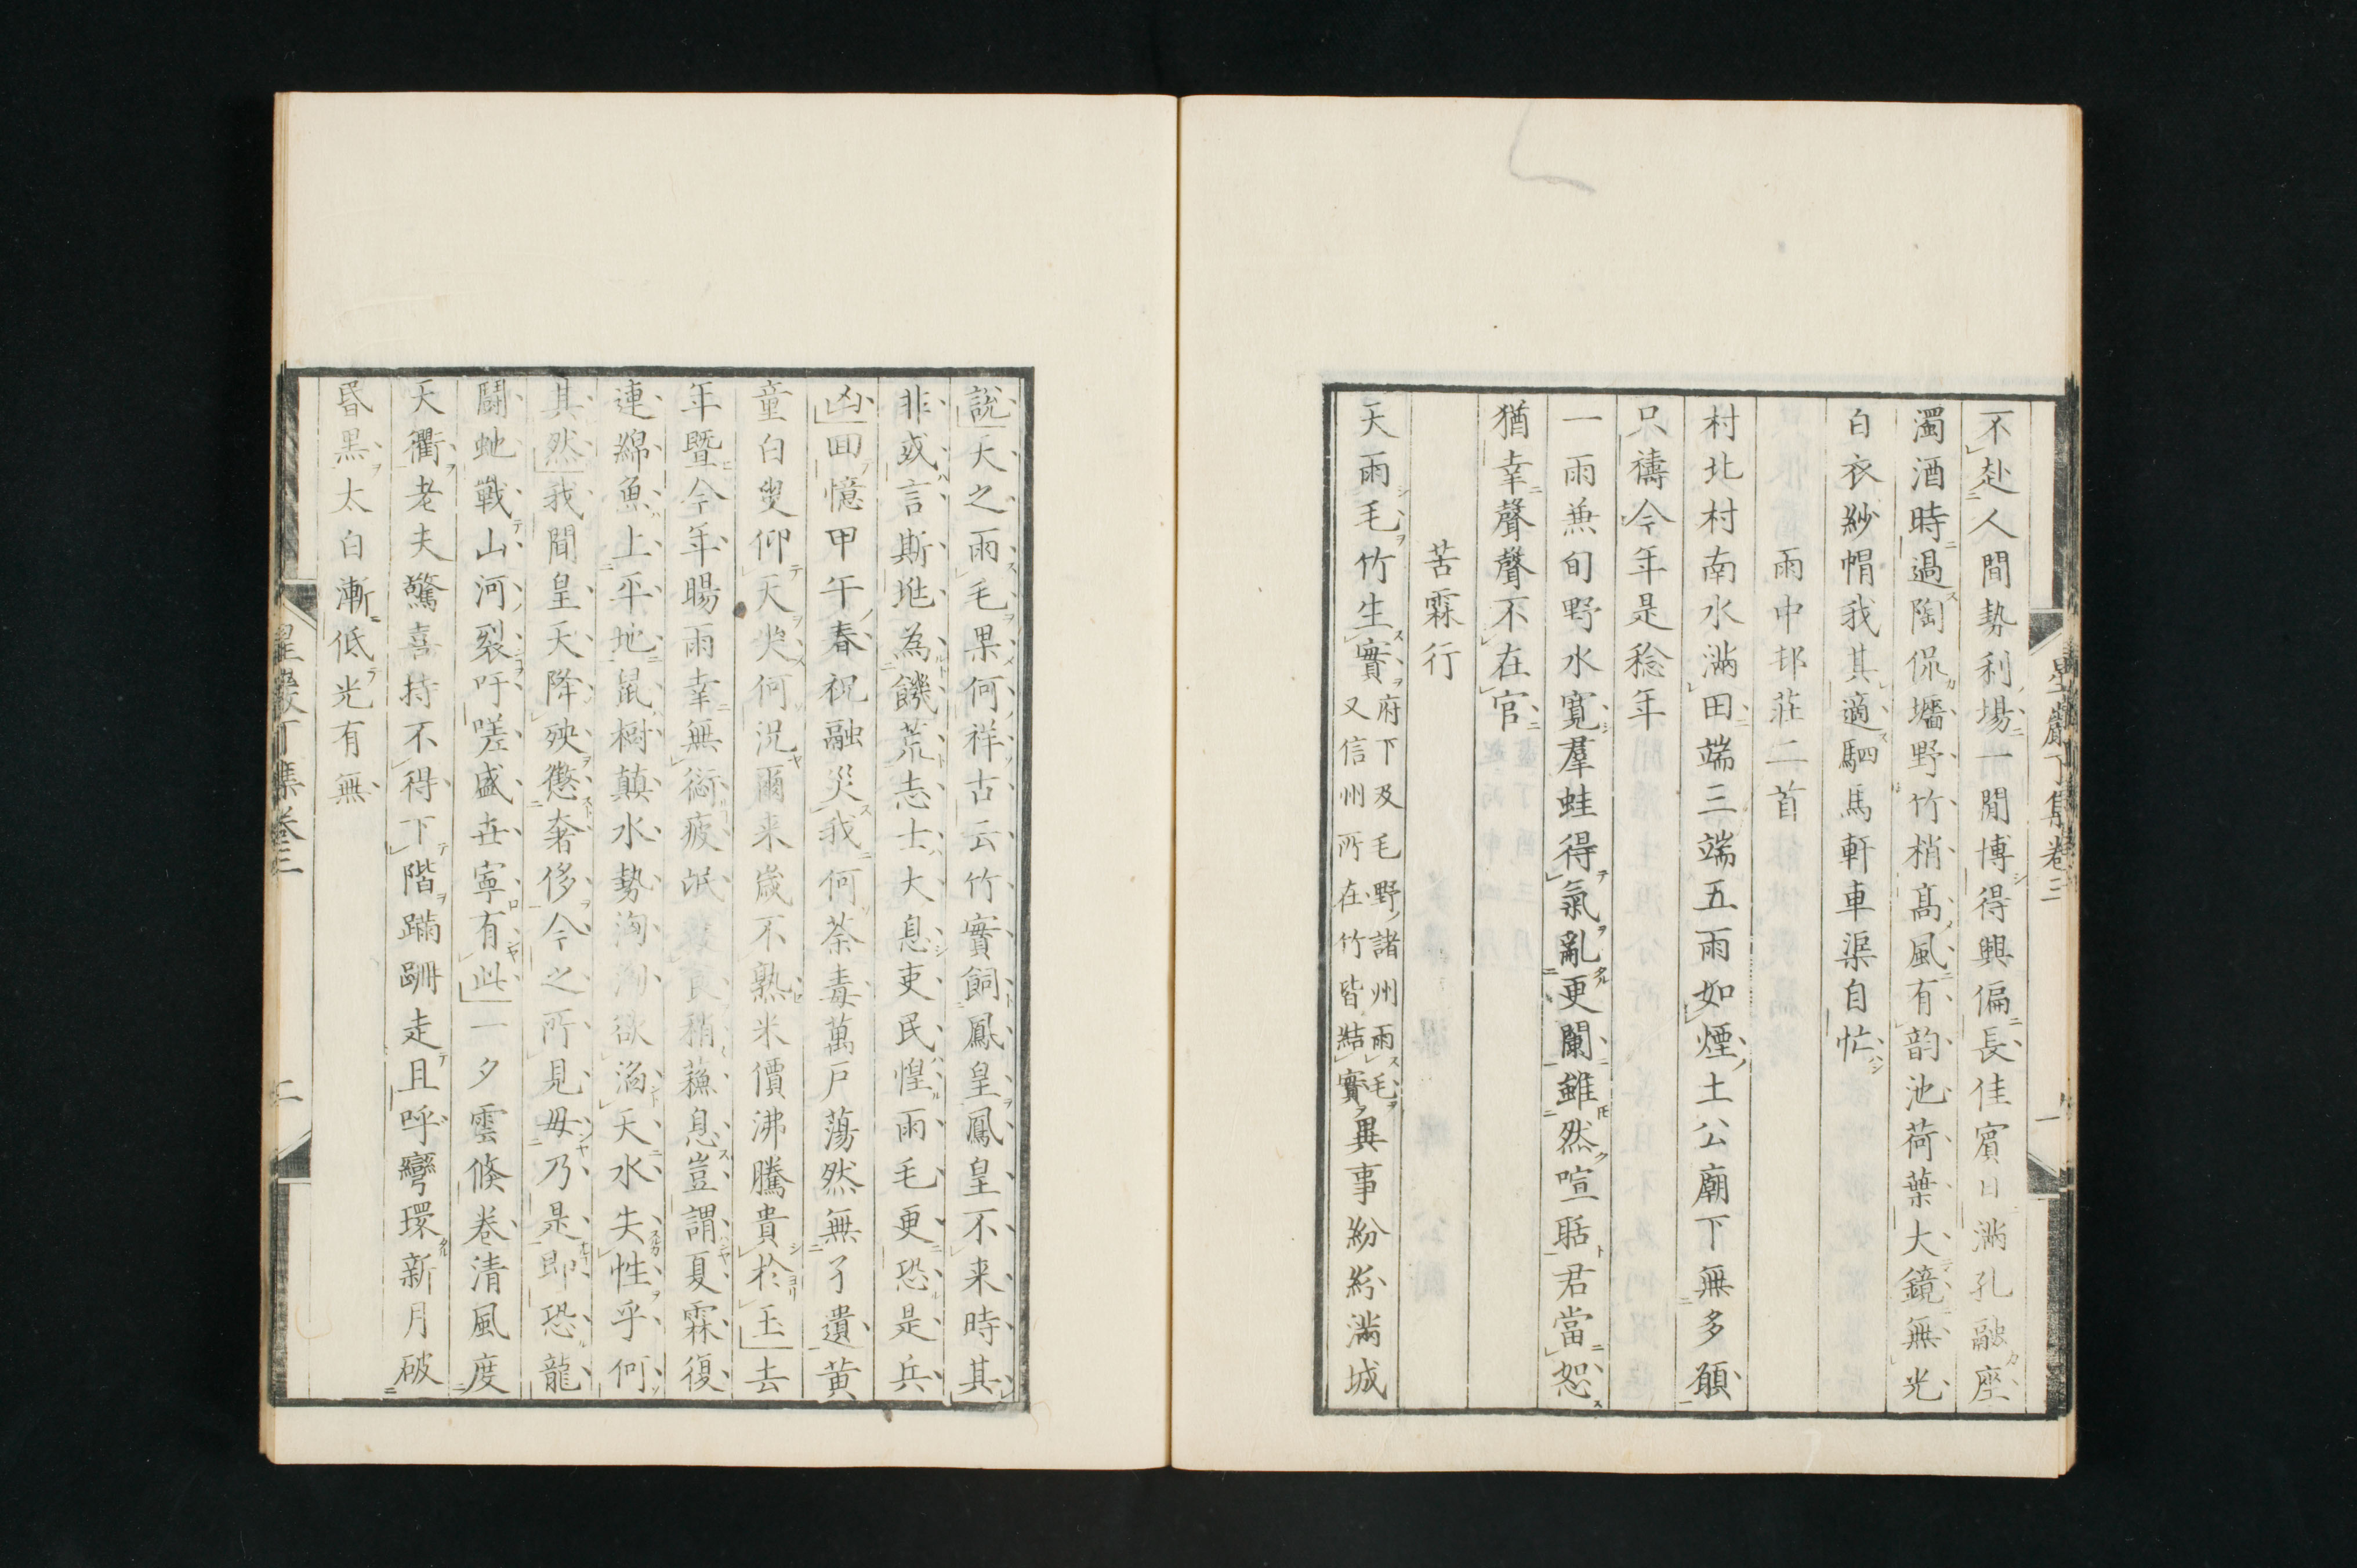 不赴人間勢利場一閒博得興偏長佳賓日滿孔融座
濁酒時過陶侃墻野竹梢高風有韵池荷葉大鏡無光
白衣紗帽我其適駟馬軒車渠自忙
雨中邨莊二首
村北村南水滿田端三端五雨如煙土公廟下無多願
只禱今年是稔年
一雨兼旬野水寬羣蛙得氣亂更闌雖然喧聒君當恕
猶幸聲聲不在官
苦霖行
天雨毛竹生實府下及毛野諸州雨毛又信州所在竹皆結實異事紛紛滿城
星巖丁集卷三
一
說天之雨毛果何祥古云竹實飼鳳皇鳳皇不来時其
非或言斯推為饑荒志士大息吏民惶雨毛更恐是兵
凶回憶甲午春祝融災我何荼毒萬戶蕩然無孑遺黄
童白叟仰天哭何況爾来歲不熟米價沸騰貴於玉去
年暨今年暘雨幸無愆疲氓稍蘓息豈謂夏霖復
連緜魚上平地鼠樹顛水勢洶洶欲滔天水失性乎何
其然我聞皇天降殃懲奢侈今之所見毋乃是即恐龍
鬪虵戰山河裂吁嗟盛世寧有此一夕雲倏卷清風度
天衢老夫驚喜持不得下階蹣跚走且呼彎環新月破
昏黒太白漸低光有無
星巖丁集卷三
二